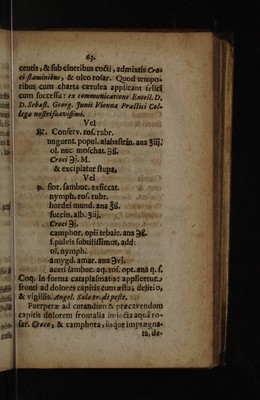 63.
centis, & sub cineribus cocti, admixtis Cro-
ci staminibus, & oleo rosar. Quod tempo-
ribus cum charta cærulea applicant felici
cum successu: ex communicatione Excell. D.
D. Sebast. Georg. Junii Viennæ Practici Col-
legæ nostri suavissimi.
Vel
℞. Conserv. ros. rubr.
unguent. popul. alabastrin. ana ʒiij.
ol. nuc. moschat. ʒß.
Croci ℈j. M.
& excipiatur stupa,
Vel
flor. sambuc. exsiccat.
nymph. ros. rubr.
hordei mund. ana
succin. alb. ʒiij.
Croci ℈j.
camphor. opii tebaic. ana
f. pulvis subtilissimus, add:
ol. nymph.
amygd. amar. ana
aceti sambuc. aq. ros. opt. ana q. s.
Coq. in forma cataplasmatis: applicetur
fronti ad dolores capitis cum æstu, delirio,
& vigiliis. Angel. Sala tr. de peste.
Puerperæ ad curandum & præcavendum
capitis dolorem frontalia in aqua ro-
sar. Croco, & camphora, iisque imprægna-
ta, de-